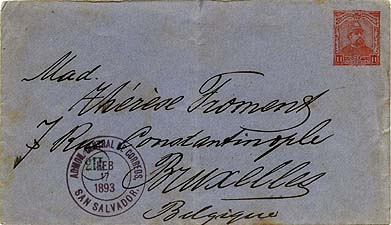 11 11
Mad.
Thérèse Froment
7 Rue Constantinople
Bruxelles
Belgique
ADMON. GENERAL DE CORREOS.
FEB
17
1893
SAN SALVADOR.